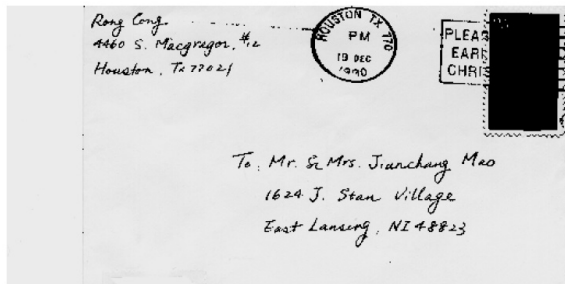 Rong Cong
4460 S. Macgregor, #12
Houston, Tx 77021
HOUSTON TX 770
PM
19 DEC
1990
PLEAS
EARL
CHRIS
To, Mr. & Mrs. Jianchang Mao
1624 J. Stan Village
East Lansing, NI 48823